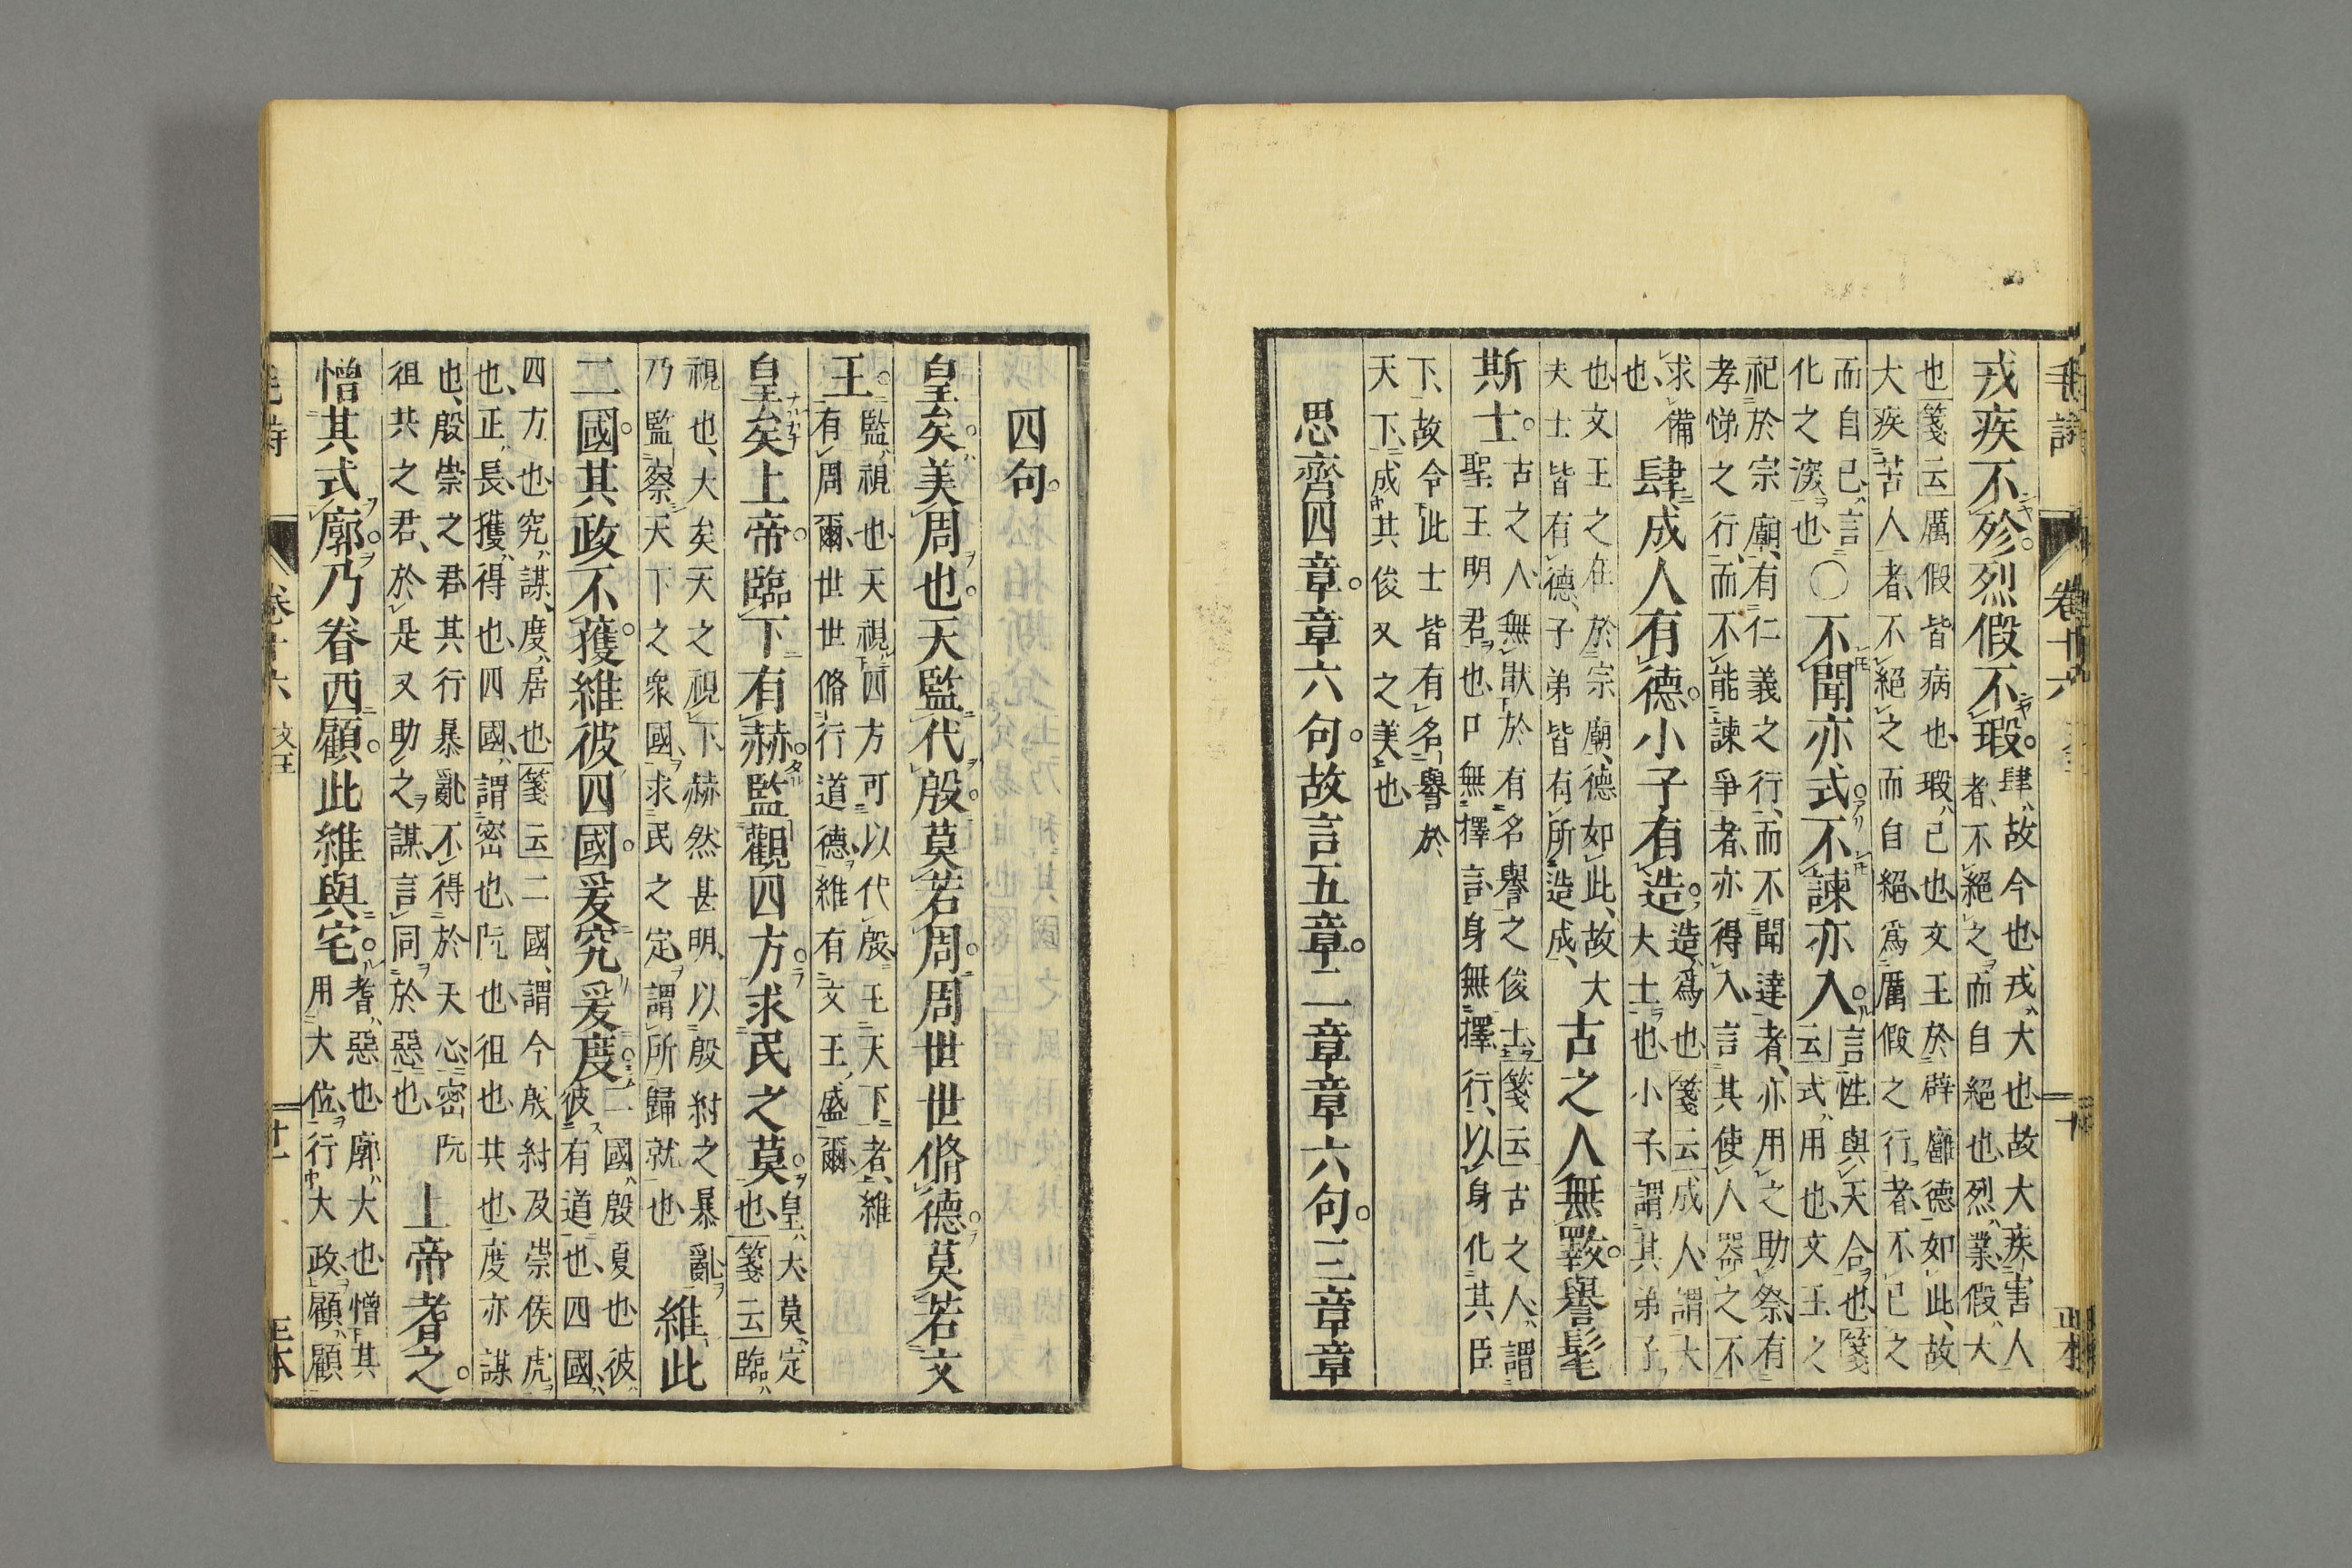 毛詩 卷十六 二十
戎疾不殄。烈假不瑕。肆故今也、戎大也、故大疾害人
者、不絕之而自絕也、烈業、假大
也箋云厲假皆病也、瑕已也、文王於辟廱德如此、故
大疾苦人者、不絕之而自絕、爲厲假之行者、不已之
而自已、言
化之深也〇不聞亦式。不諫亦入。言性與天合也、箋
云式用也、文王之
祀於宗廟、有仁義之行、而不聞達者、亦用之助祭、有
孝悌之行、而不能諫爭者、亦得入、言其使人器之不
求備
也、肆成人有德。小子有造。造爲也、箋云成人、謂大
大士也、小子、謂其弟子、
也、文王之在於宗廟、德如此、故大
夫士皆有德、子弟皆有所造成、古之人無斁。譽髦
斯士。古之人、無猒於有名譽之俊士、箋云古之人、謂
聖王明君也、口無擇言、身無擇行、以身化其臣
下、故令此士皆有名譽於
天下、成其俊乂之美也、
思齊四章。章六句。故言五章。二章章六句。三章章
四句。
皇矣。美周也。天監代殷。莫若周。周世世脩德。莫若文
王。監視也、天視四方可以代殷王天下者、維
有周爾、世世脩行道德、維有文王盛爾、
皇矣上帝。臨下有赫。監觀四方。求民之莫。皇大、莫定
也、箋云臨
視也、大矣天之視下、赫然甚明、以殷紂之暴亂、
乃監察天下之衆國、求民之定、謂所歸就也、維此
二國。其政不獲。維彼四國。爰究爰度。二國、殷夏也、彼
彼有道也、四國、
四方也、究謀、度居也、箋云二國、謂今殷紂及崇侯虎
也、正長、獲得也、四國、謂密也、阮也、徂也、共也、度亦謀
也、殷崇之君、其行暴亂、不得於天心、密阮
徂共之君、於是又助之謀、言同於惡也、上帝耆之。
憎其式廓。乃眷西顧。此維與宅。耆惡也、廓大也、憎其
用大位、行大政、顧顧
毛詩 卷十六 文王 二十一